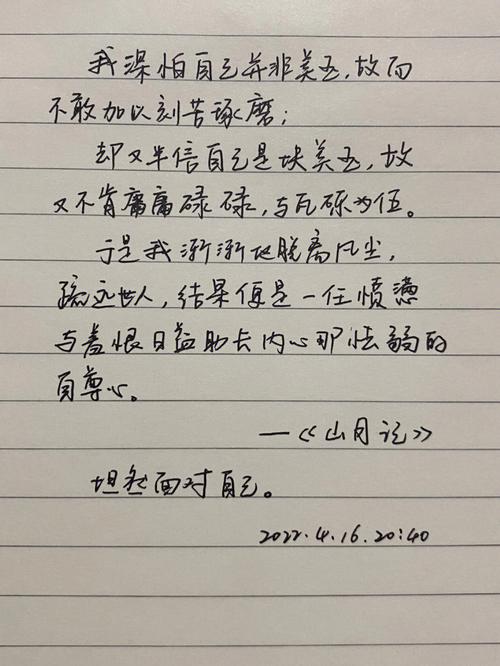 我深怕自己并非美玉，故而
不敢加以刻苦琢磨；
却又半信自己是块美玉，故
又不肯庸庸碌碌，与瓦砾为伍。
于是我渐渐地脱离风尘，
疏远世人，结果便是一任愤懑
与羞恨日益助长内心那怯弱的
自尊心。
—《山月记》
坦然面对自己。
2022.4.16.20:40